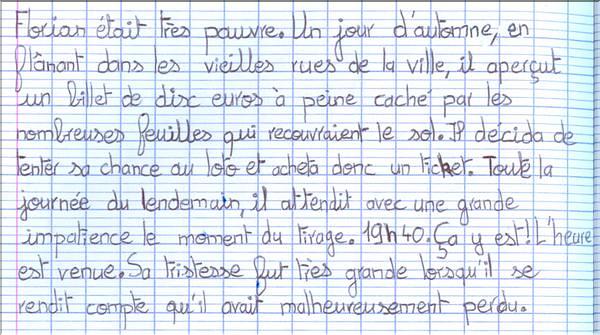 Florian était très pauvre. Un jour d'automne, en
flânant dans les vieilles rues de la ville, il aperçut
un billet de disc euros à peine caché par les
nombreuses feuilles qui recouvraient le sol. Il décida de
tenter sa chance au loto et acheta donc un ticket. Toute la
journée du lendemain, il attendit avec une grande
impatience le moment du tirage. 19h40. Ça y est! L'heure
est venue. Sa tristesse fut très grande lorsqu'il se
rendit compte qu'il avait malheureusement perdu.